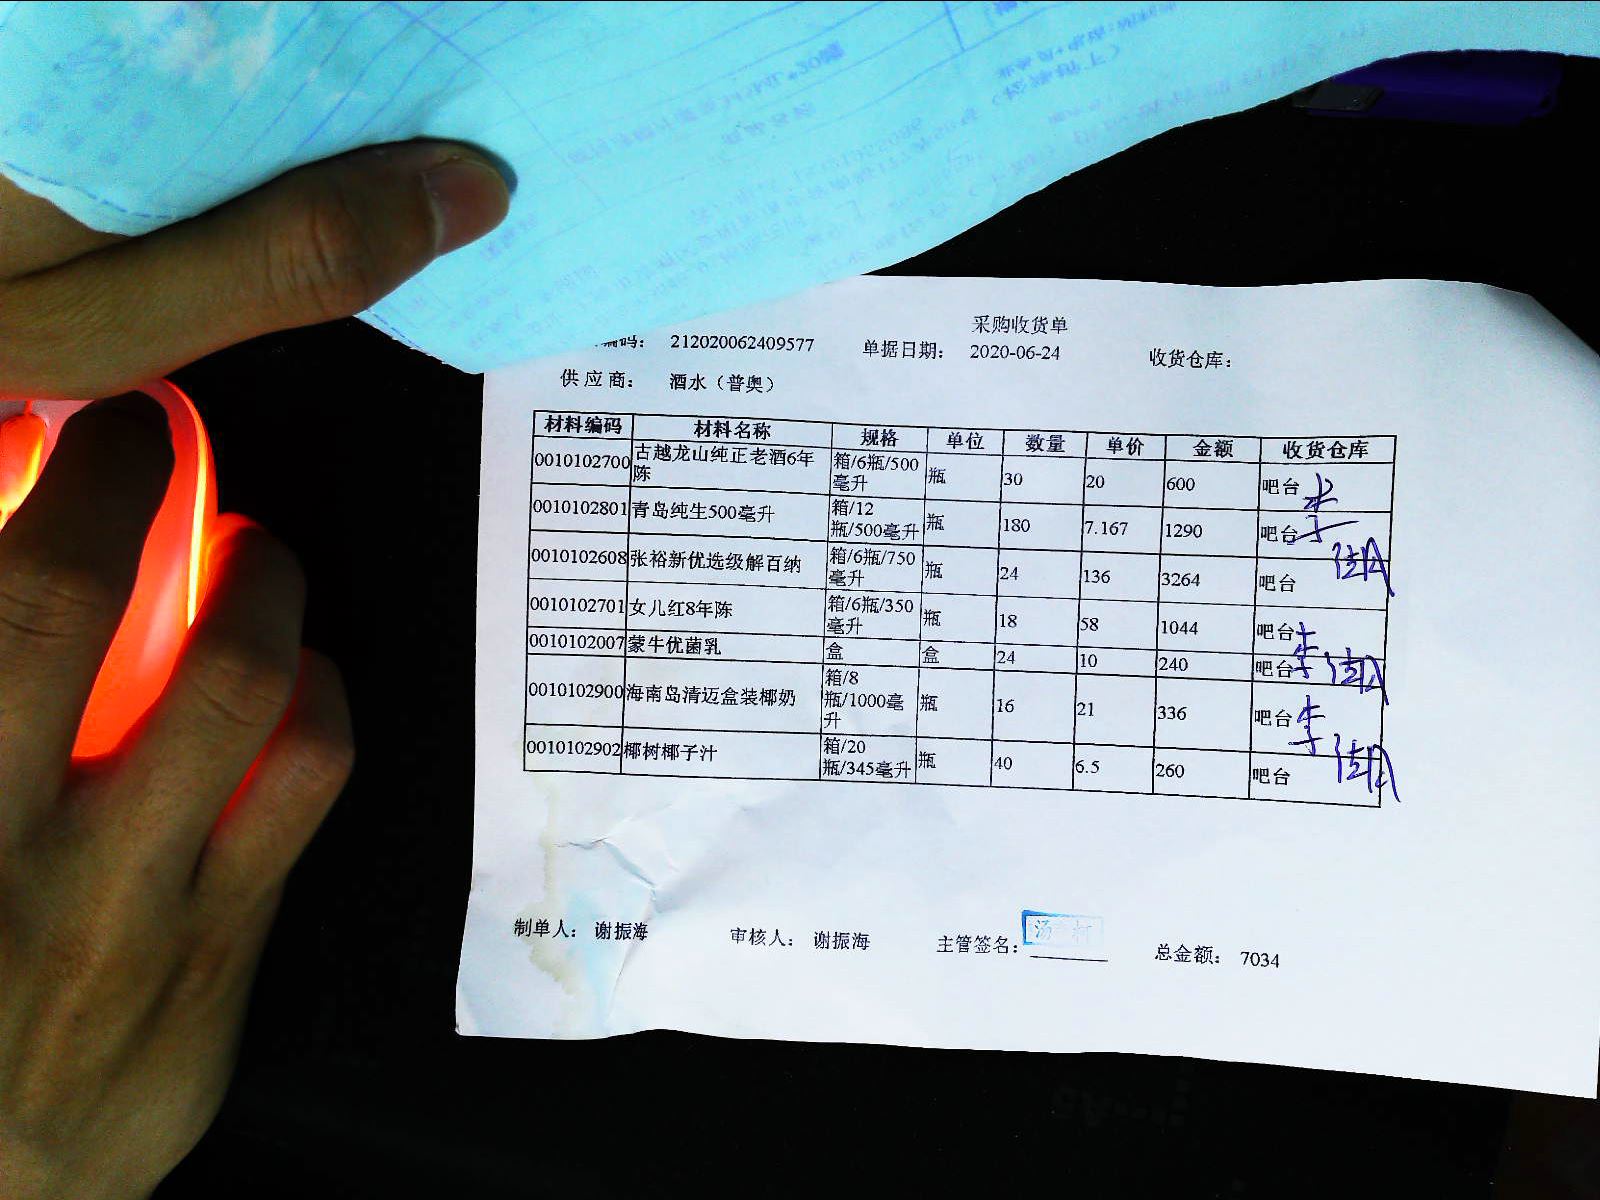 采购收货单
编码： 212020062409577 单据日期： 2020-06-24 收货仓库：
供应商： 酒水（普奥）
材料编码 材料名称 规格 单位 数量 单价 金额 收货仓库
0010102700 古越龙山纯正老酒6年陈 箱/6瓶/500毫升 瓶 30 20 600 吧台
0010102801 青岛纯生500毫升 箱/12瓶/500毫升 瓶 180 7.167 1290 吧台
0010102608 张裕新优选级解百纳 箱/6瓶/750毫升 瓶 24 136 3264 吧台
0010102701 女儿红8年陈 箱/6瓶/350毫升 瓶 18 58 1044 吧台
0010102007 蒙牛优菌乳 盒 盒 24 10 240 吧台
0010102900 海南岛清迈盒装椰奶 箱/8瓶/1000毫升 瓶 16 21 336 吧台
0010102902 椰树椰子汁 箱/20瓶/345毫升 瓶 40 6.5 260 吧台
制单人： 谢振海 审核人： 谢振海 主管签名： 总金额： 7034